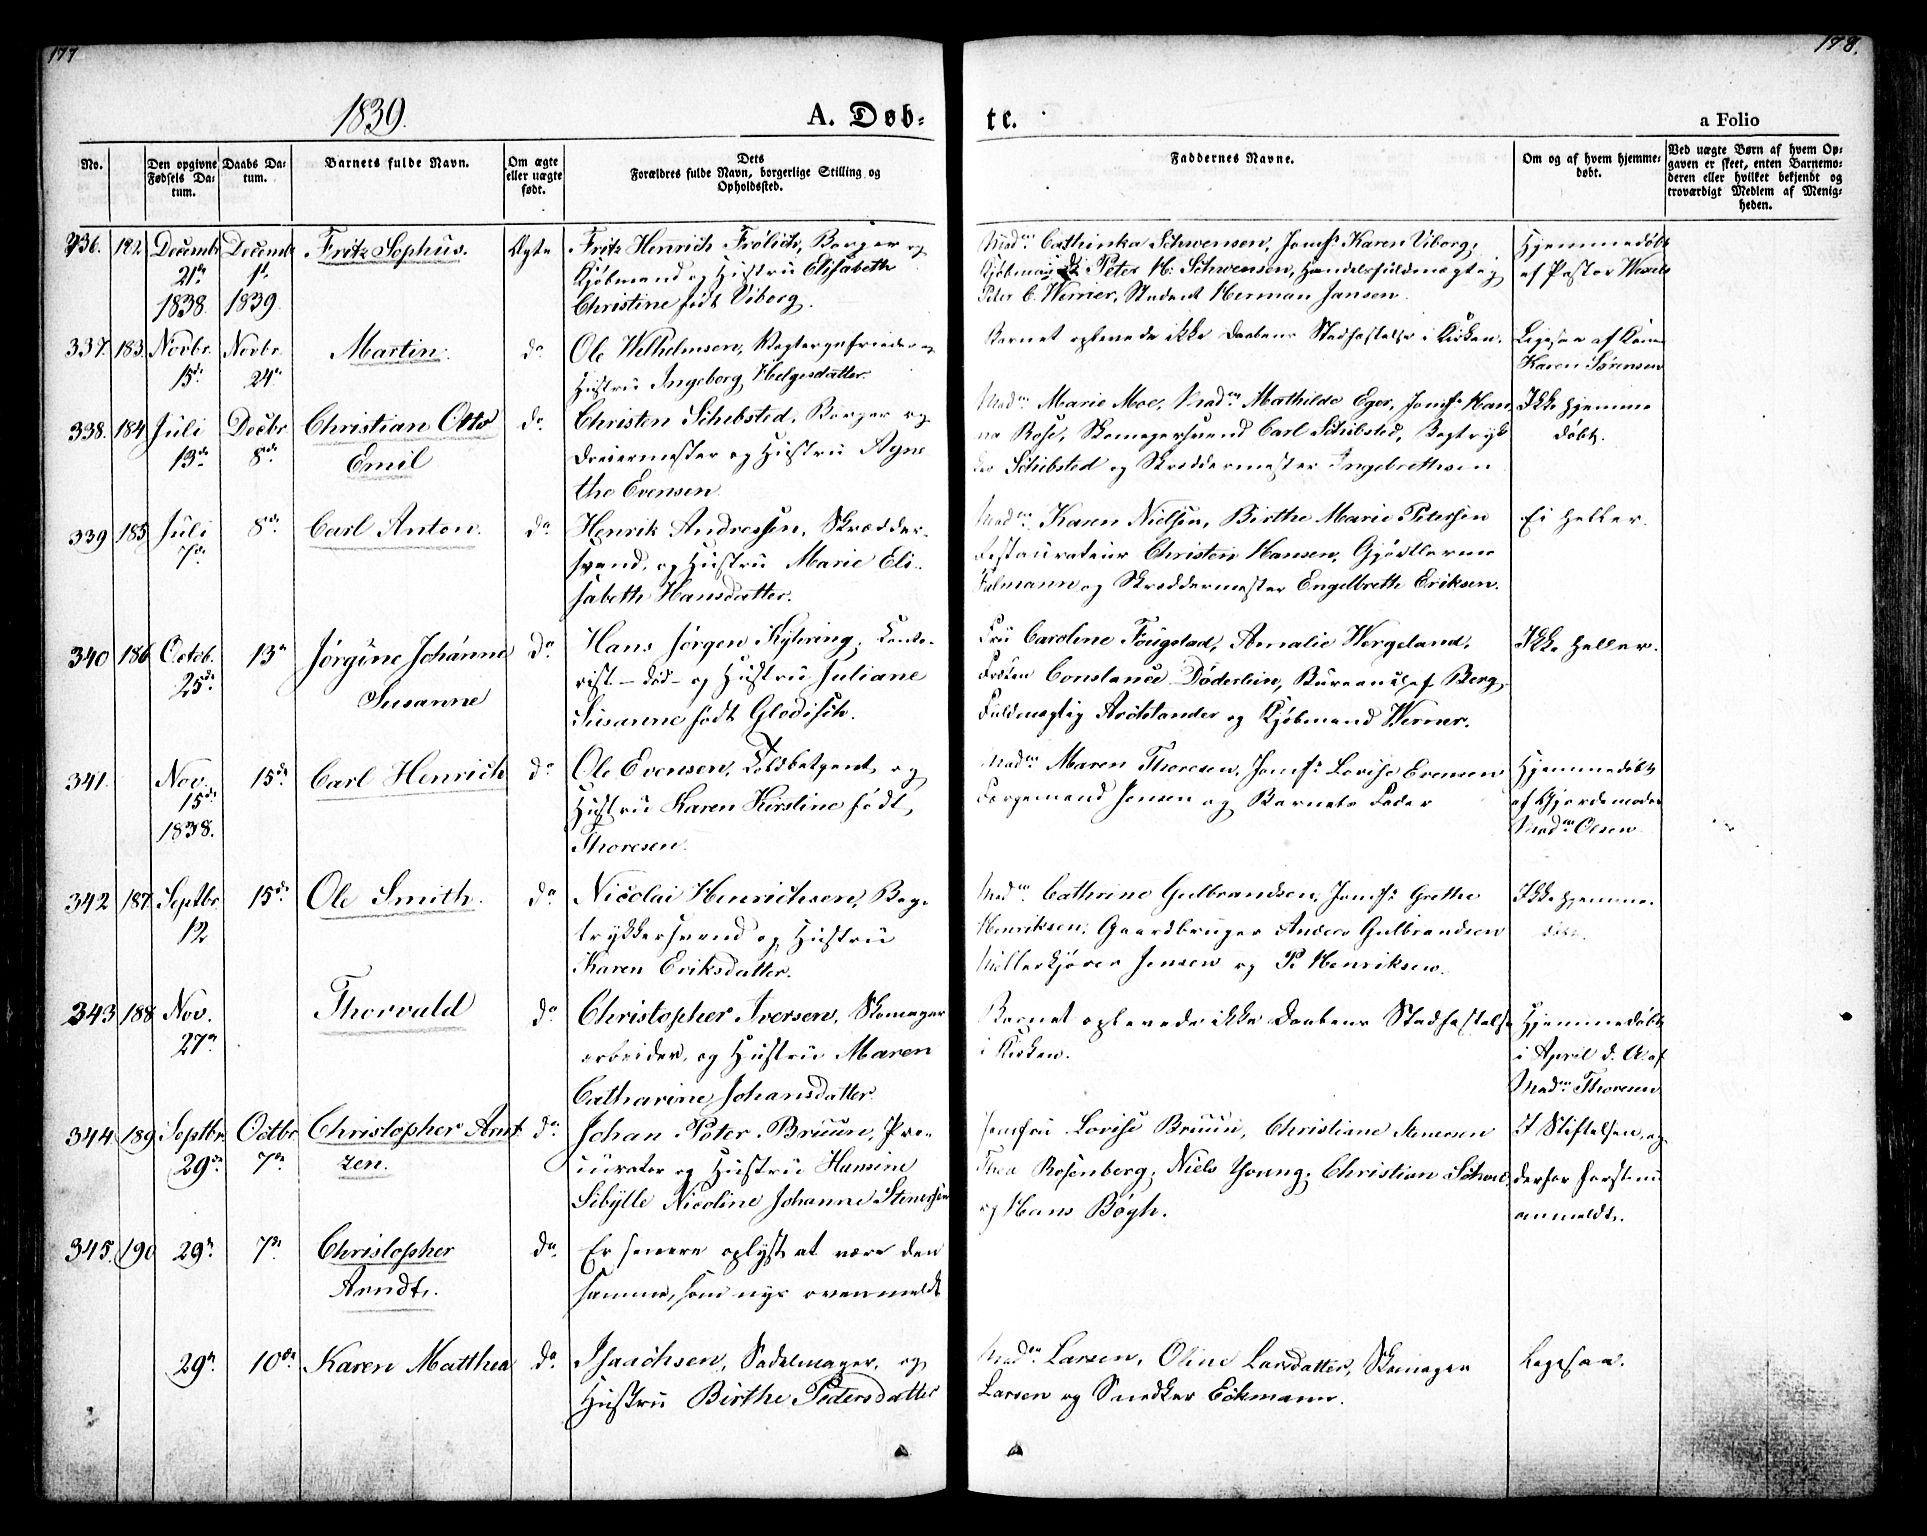 177
178.
1839.
A. Døb-
te.
a Folio
No.
Den opgivne Fødsels Datum.
Daabs Datum.
Barnets fulde Navn.
Om ægte eller uægte født.
Dets Forældres fulde Navn, borgerlige Stilling og Opholdssted.
Faddernes Navne.
Om og af hvem hjemmedøbt.
Ved uægte Børn af hvem Opgaven er skeet, enten Barnemoderen eller hvilket bekjendt og troværdigt Medlem af Menigheden.
336. 182. Decembr 21de 1838. Decemb 1st 1839. Fritz Sophus. Ægte
Fritz Henrich Frölich, Borger og
Kjøbmand og Hustru Elisabeth
Christine født Viborg.
Madm Cathinka Schwensen, Jomfr Karen Viborg,
Kjøbmand Peter H: Schwensen, Handelsfuldmægtig
Peter C. Werner, Student Herman Jansen.
Hjemmedøbt
af Pastor Wexels
337. 183. Novbr. 15de Novbr. 24de Martin. do
Ole Wilhelmsen,
Hustru Ingeborg Helgesdatter.
Barnet oplevede ikke Daabens Stadfæstelse i Kirken.
Ligesaa af Kone
Karen Sørensen
338. 184 Juli 13de Decbr 8de Christian Otto
Emil
do
Christen Schibsted, Borger og
Dreiermester og Hustru Agne
the Evensen
Madm Marie Moe, Madm Mathilde Eger, Jomfr Han
na Rosè, Skomagersvend Carl Schibsted, Bogtryk
ker Schibsted og Skræddermester Ingebrethsen
Ikke hjemme
døbt.
339 185 Juli 7de 8de Carl Anton. do
Henrik Andressen, Skrædder-
svend, og Hustru Marie Eli-
sabeth Hansdatter.
Madm Karen Nielsen, Birthe Marie Petersen
Restaurateur Christen Hansen, Gjørtlerne
Falmann og Skræddermester Engelbreth Eriksen.
Ei heller.
340 186 Octob. 25de 13de Jørgine Johanne
Susanne
do
Hans Jørgen Kyhring, Conto-
rist - død - og Hustru Juliane
Susanne født Glodisch.
Fru Caroline Fougstad, Amalie Wergeland,
Frøken Constance Döderlein, Bureauchef Berg,
Fuldmægtig Archtander og Kjøbmand Werner.
Ikke heller.
341. Nov. 15de 1838. 15de Carl Henrich do
Ole Evensen, Toldbetjent, og
Hustru Karen Kirstine født,
Thoresen.
Madm Maren Thoresen, Jomfr Lovise Evensen
Færgemand Jensen og Barnets Fader
Hjemmedøbt
af Gjordemoder
Madm Olsen
342 187 Septbr. 12 15de Ole Smith. do
Nicolai Henrichsen, Bog-
trykkersvend og Hustru
Karen Eriksdatter.
Madm Cathrine Gulbrandsen, Jomfr Grethe
Henriksen, Gaardbruger Anders Gulbrandsen
Møllerkjører Jensen og P. Henriksen.
Ikke hjemme
døbt.
343 188 Nov. 27de Thorvald do
Christopher Iversen, Skomager
arbeider, og Hustru Maren
Catharine Johansdatter
Barnet oplevede ikke Daabens Stadfæstelse
i Kirken.
Hjemmedøbt
i April d. A. af
Madm Thoresen
344 189 Septbr. 29de Octbr 7de Christopher Arnt
zen.
do
Johan Peter Bruun, Pro-
curator og Hustru Humine
Sibylle Nicoline Johanne Stenersen
Jomfru Lovise Bruun, Christiane Stenersen
Thea Rosenberg, Niels Young, Christian Schou
og Hans Bøgh.
I Stiftelsen, og
derfor først nu
anmeldt.
345. 190 29de 7de Christopher
Arndt.
do
Er senere oplyst at være den
samme, som nys ovenmeldt
29de 10de Karen Matthea do
Isaachsen, Sadelmager, og
Hustru Birthe Pedersdatter
Madm Larsen, Oline Larsdatter, Skomager
Larsen og Snedker Eckmann.
Ligesaa.